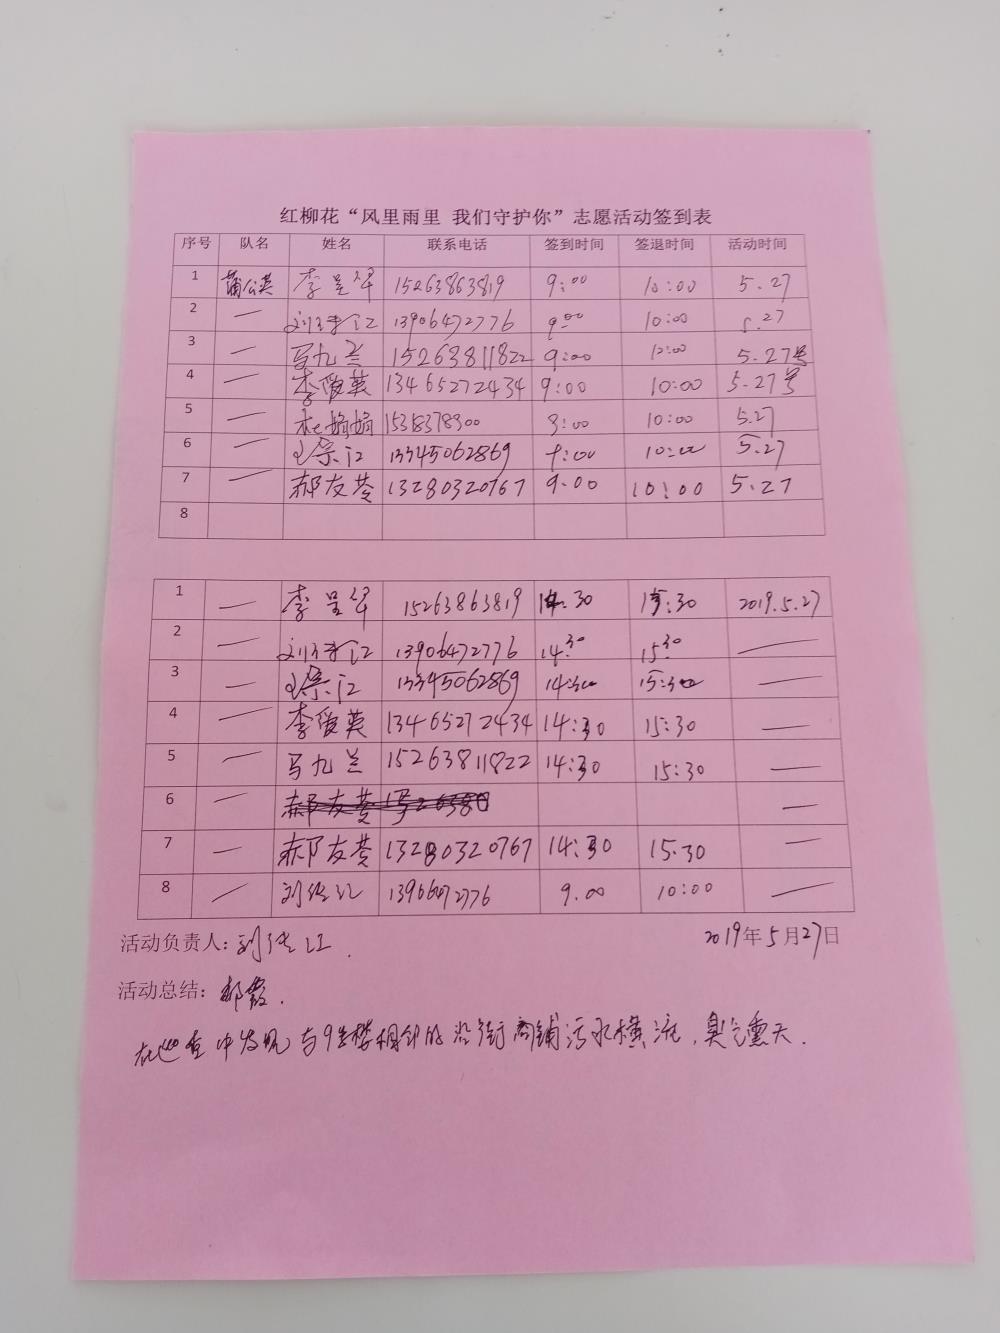 红柳花“风里雨里 我们守护你”志愿活动签到表
序号 队名 姓名 联系电话 签到时间 签退时间 活动时间
1 蒲公英 李呈华 15263863819 9:00 10:00 5.27
2 — 刘 江 13906472776 9:00 10:00 5.27
3 — 马九兰 15263811822 9:00 10:00 5.27号
4 — 李俊英 13465272434 9:00 10:00 5.27号
5 — 杜娟娟 1538378900 9:00 10:00 5.27
6 — 江 13345062869 9:00 10:00 5.27
7 — 郝友苓 13280320767 9:00 10:00 5.27
8
1 — 李呈华 15263863819 14:30 15:30 2019.5.27
2 — 刘 江 13906472776 14:30 15:30 —
3 — 江 13345062869 14:30 15:30
4 — 李俊英 13465272434 14:30 15:30 —
5 — 马九兰 15263811822 14:30 15:30 —
6 — —
7 — 郝友苓 13280320767 14:30 15:30 —
8 — 刘 江 13906472776 9.00 10:00 —
活动负责人: 刘 江. 2019年5月27日
活动总结: 郝霞.
在巡查中发现与9号楼相邻的沿街商铺污水横流,臭气熏天.